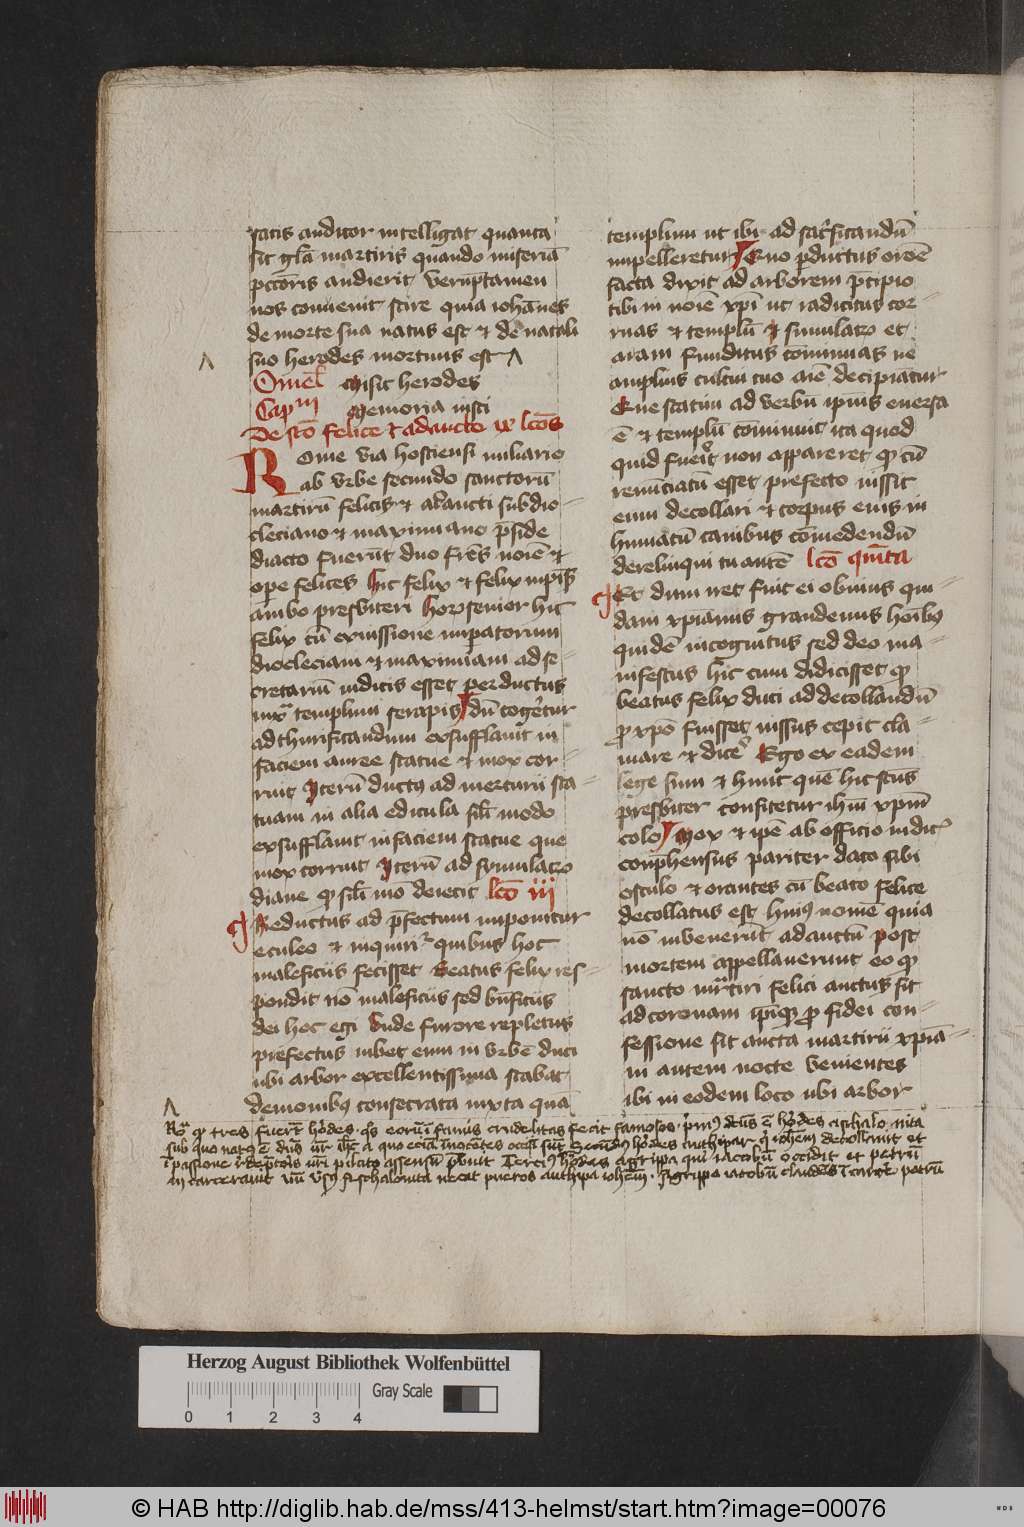 satis auditor intelligat quanta
sit gl̄a martiris quando miseria
pccōris audierit verūptamen
nos convenit scire quia iohānes
de morte sua natus est et de natali
suo herodes mortuus est ʌ
Omel̄ Misit herodes
Cap̄m Memoria iusti
De sc̄o felice et adaucto ix lcōs
Rome via hostiensi miliario
ab urbe secundo sanctorū
martirū felicis et adaucti sub dio-
cleciano et maximiano p̄side
diacto fuerūt duo fr̄es noīe et
ope felices Hic felix et felix
ambo presbiteri horū senior hic
felix cū ex iussione impatorum
diocleciani et maximiani ad se-
cretariū iudicis esset perductus
iuxᵃ templum serapis dū cogeretur
ad thurificandum exsufflavit in
faciem auree statue et mox cor-
ruit Iterū ductꝰ ad mercurii sta-
tuam in alia edicula sīli modo
exsufflavit in faciem statue que
mox corruit Iterū ad symulacro
diane qᵈ sīli mō deiecit lcō iii
Reductus ad p̄fectum imponitur
eculeo et inquirit quibus hoc
maleficiis fecisset Beatus felix res-
pondit nō maleficiis sed bn̄ficiis
dei hoc egi Unde furore repletus
prefectus iubet eum in urbē duci
ubi arbor excellentissima stabat
demonibꝰ consecrata iuxta quā
templum ut ibi ad sacrificandū
impelleretur Quo pductus orōe
facta dixit ad arborem p̄cipio
tibi in noīe xp̄i ut radicitus cor-
ruas et templū et simulacro et
aram funditus cōminuas ne
amplius cultui tuo aīe decipiātur
Que statim ad verbū ipius eversa
ē et templū cōminuit ita quod
quid fuerit non appareret qᵈ cū
renūciatū esset prefecto iussit
eum decollari et corpus eius in
humatū canibus cōmedendū
derelinqui tu autē lcō quīta
Et dum nec fuit ei obvius qui-
dam xp̄ianus hoībꝰ
quidē incognitus sed deo ma-
nifestus hic cum didicisset qᵈ
beatus felix duci ad decollandū
pro xp̄o fuisset iussus cepit cla-
mare et dicē Ego ex eadem
lege sum et hunc quē hic sctūs
presbiter confitetur ihm̄ xp̄m
colo Mox et ip̄e ab officio iudicꝭ
comp̄hensus pariter dato sibi
osculo et orantes cū beato felice
decollatus est huiꝰ nomē quia
nō invenerūt adauctū post
mortem appellaverunt eo qᵈ
sancto mr̄tiri felici auctus sit
ad coronam ip̄iqꝫ pro fidei con-
fessione sit aucta martirii xp̄ia-
in autem nocte venientes
ibi in eodem loco ubi arbor
Nōᵃ qᵈ tres fuerūt hōdes qs eorū ī famis crudelitas fecit famosos. primꝰ dctūs ē hōdes aschalonita
sub quo natꝰ ē dn̄s nr̄ ihc a quo eciā inocētes occisi sūt Secundꝰ hōdes anthipas qui iohēm decollavit et
ī passione rēdeptōris nr̄i pilato assensū p̄buit Terciꝰ hōdes agrippa qui iacobū occidit et petrū
in carceravit Un̄ vsꝰ Aschalonita necat pueros anthipa iohēm. Agrippa iacobū claudēs ī carcēr petrū
Herzog August Bibliothek Wolfenbüttel
0 1 2 3 4
Gray Scale
© HAB http://diglib.hab.de/mss/413-helmst/start.htm?image=00076